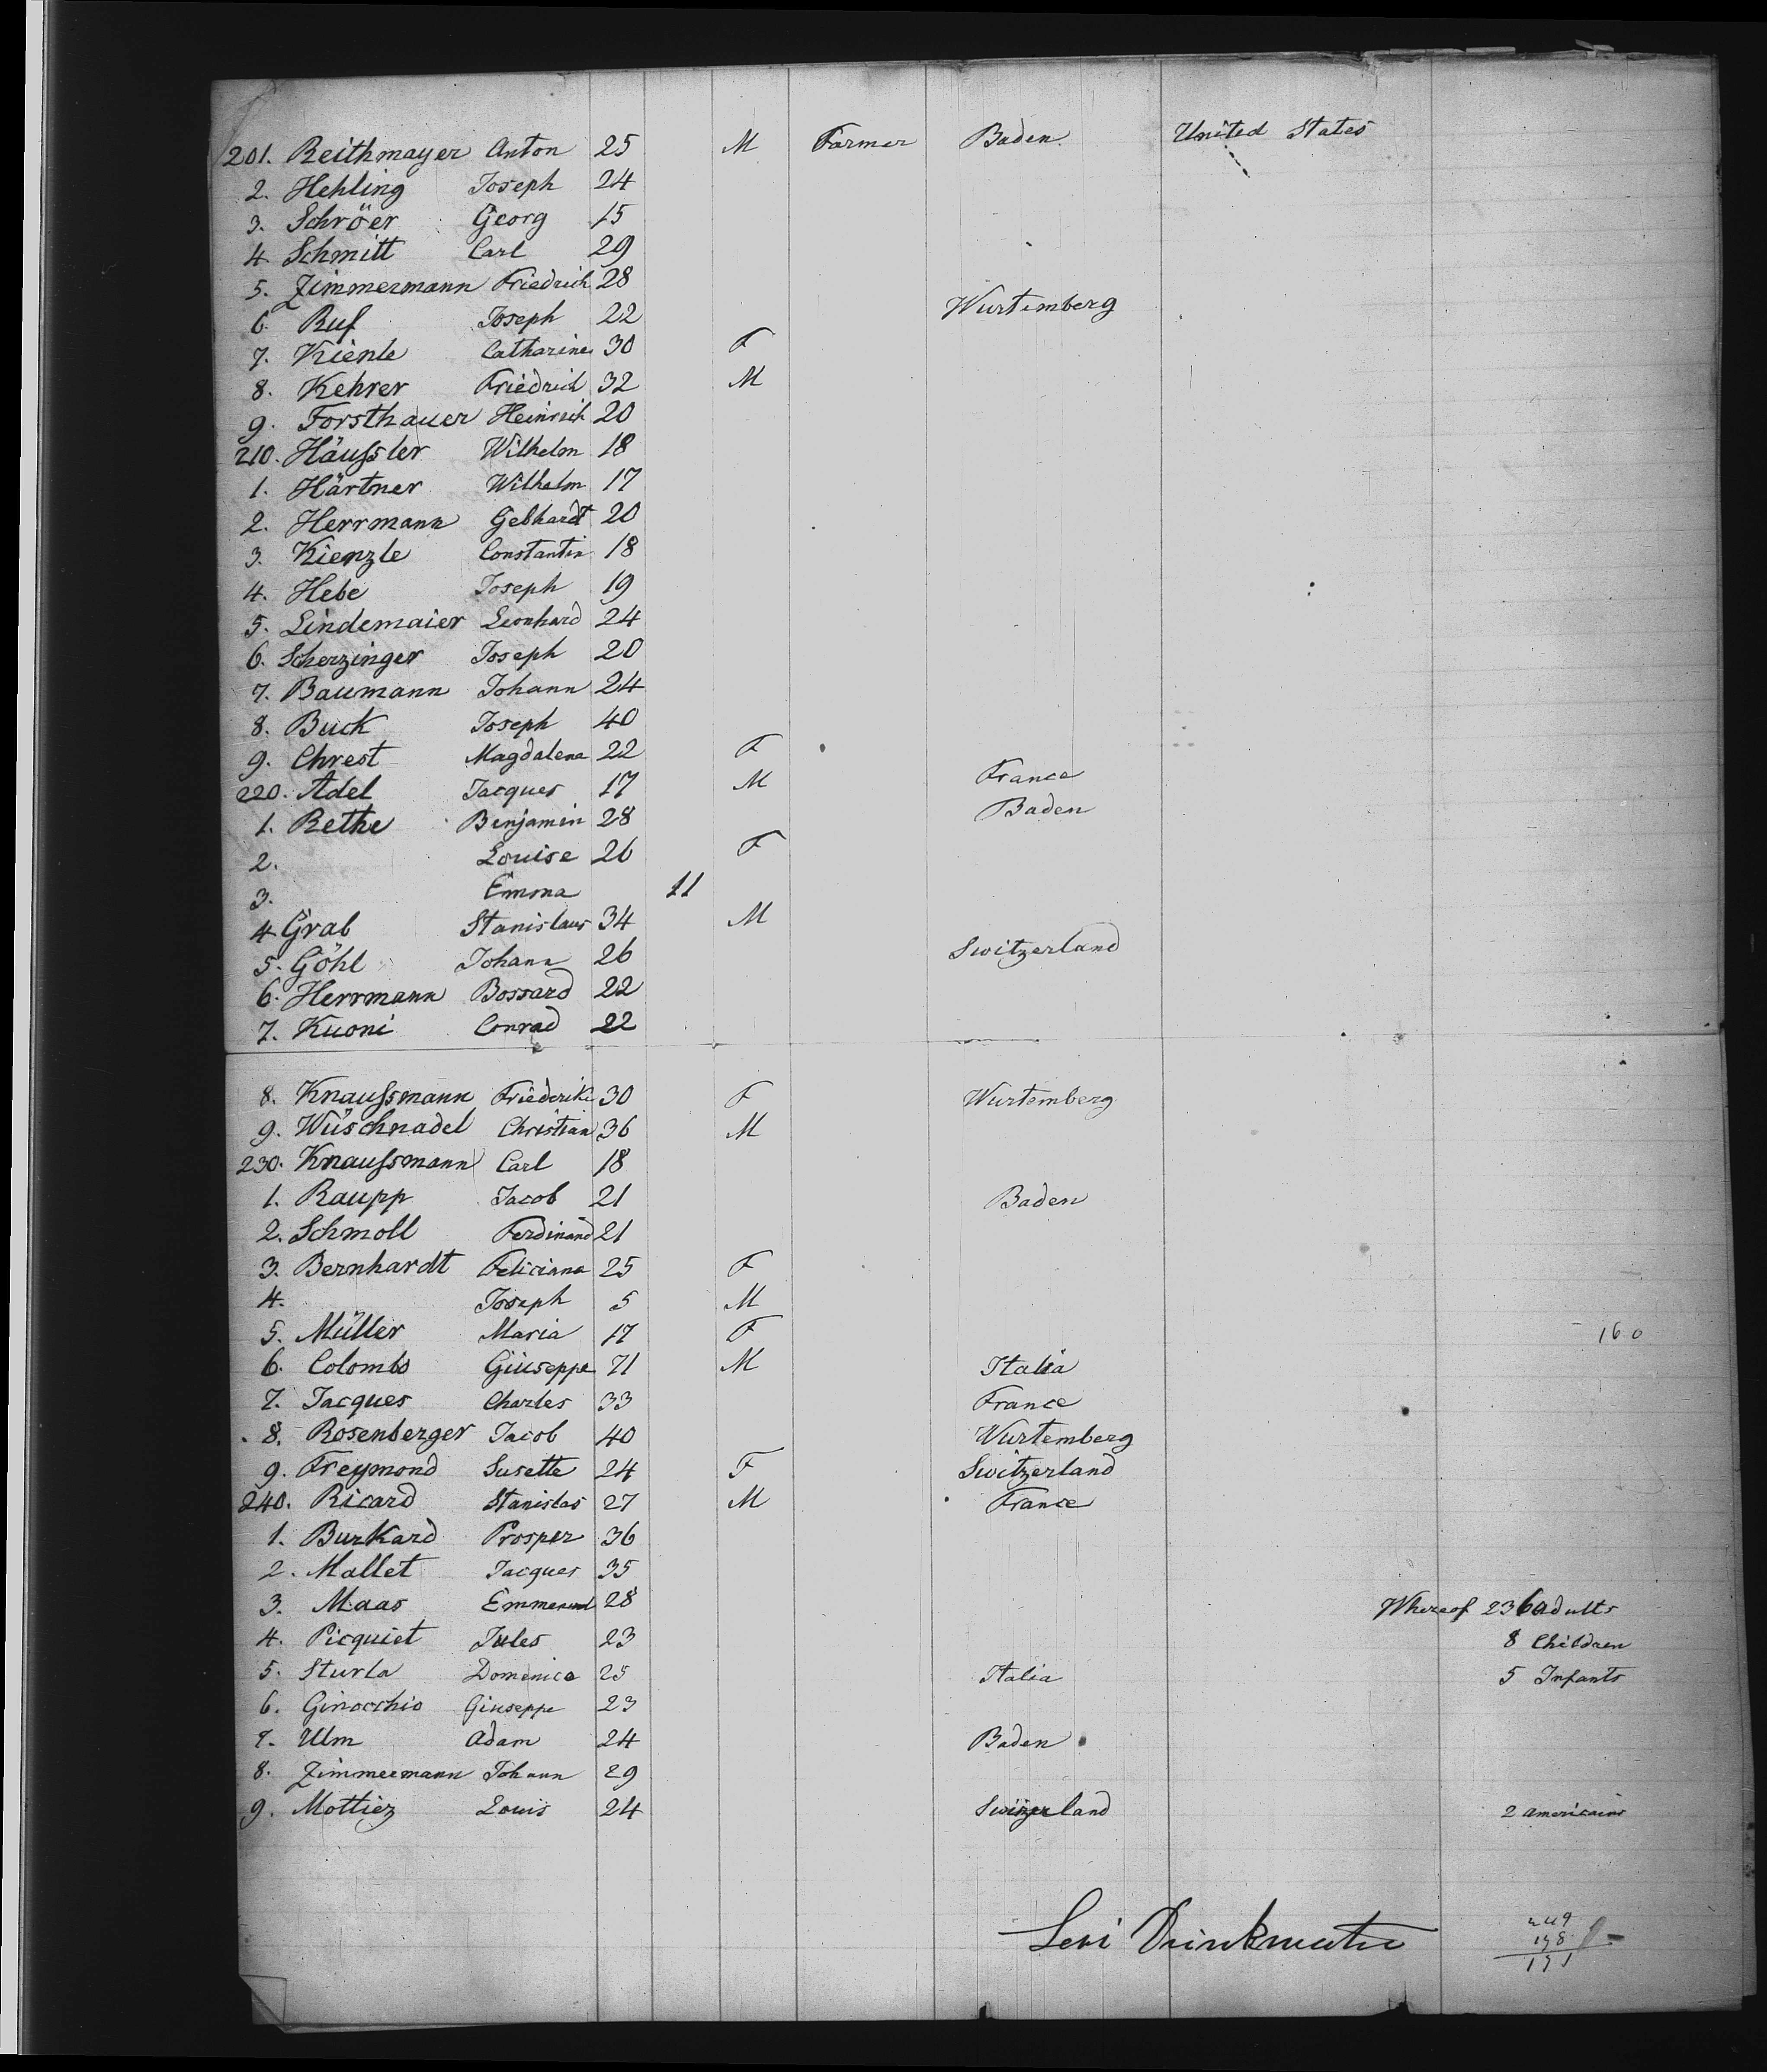 201. Reithmayer Anton 25 M Farmer Baden United States
2. Hehling Joseph 24
3. Schröer Georg 15
4 Schmitt Carl 29
5. Zimmermann Friedrich 28
6. Ruf Joseph 22 Wurtemberg
7. Kienle Catharine 30 F
8. Kehrer Friedrich 32 M
9. Forsthauer Heinrich 20
210. Häussler Wilhelm 18
1. Härtner Wilhelm 17
2. Herrmann Gebhardt 20
3. Kienzle Constantin 18
4. Hebe Joseph 19
5. Lindemaier Leonhard 24
6. Scherzinger Joseph 20
7. Baumann Johann 24
8. Buck Joseph 40
9. Chrest Magdalena 22 F
220. Adel Jacques 17 M France
1. Rethe Benjamin 28 Baden
2. Louise 26 F
3. Emma 11
4 Grab Stanislaus 34 M
5. Göhl Johann 26 Switzerland
6. Herrmann Bossard 22
7. Kuoni Conrad 22
8. Knaussmann Friederike 30 F Wurtemberg
9. Wüschnadel Christian 36 M
230. Knaussmann Carl 18
1. Raupp Jacob 21 Baden
2. Schmoll Ferdinand 21
3. Bernhardt Feliciana 25 F
4. Joseph 5 M
5. Müller Maria 17 F 160
6. Colombo Giuseppe 71 M Italia
7. Jacques Charles 33 France
8. Rosenberger Jacob 40 Wurtemberg
9. Freymond Susette 24 F Switzerland
240. Ricard Stanislas 27 M France
1. Burkard Prosper 36
2. Mallet Jacques 35
3. Maas 28 Whereof 236 adults
4. Picquiet Jules 23 8 Children
5. Sturla Domenico 25 Italia 5 Infants
6. Ginocchio Giuseppe 23
7. Ulm Adam 24 Baden
8. Zimmermann Johann 29
9. Mottiez Louis 24 Switzerland 2 americains
Levi Drinkwater
249
178
171